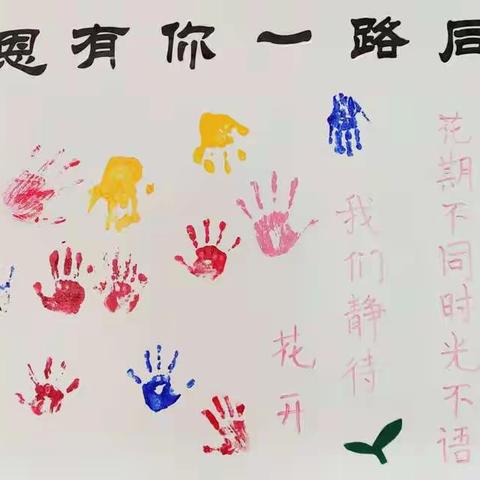 恩有你一路同
花期不同时光不语
我们静待
花开